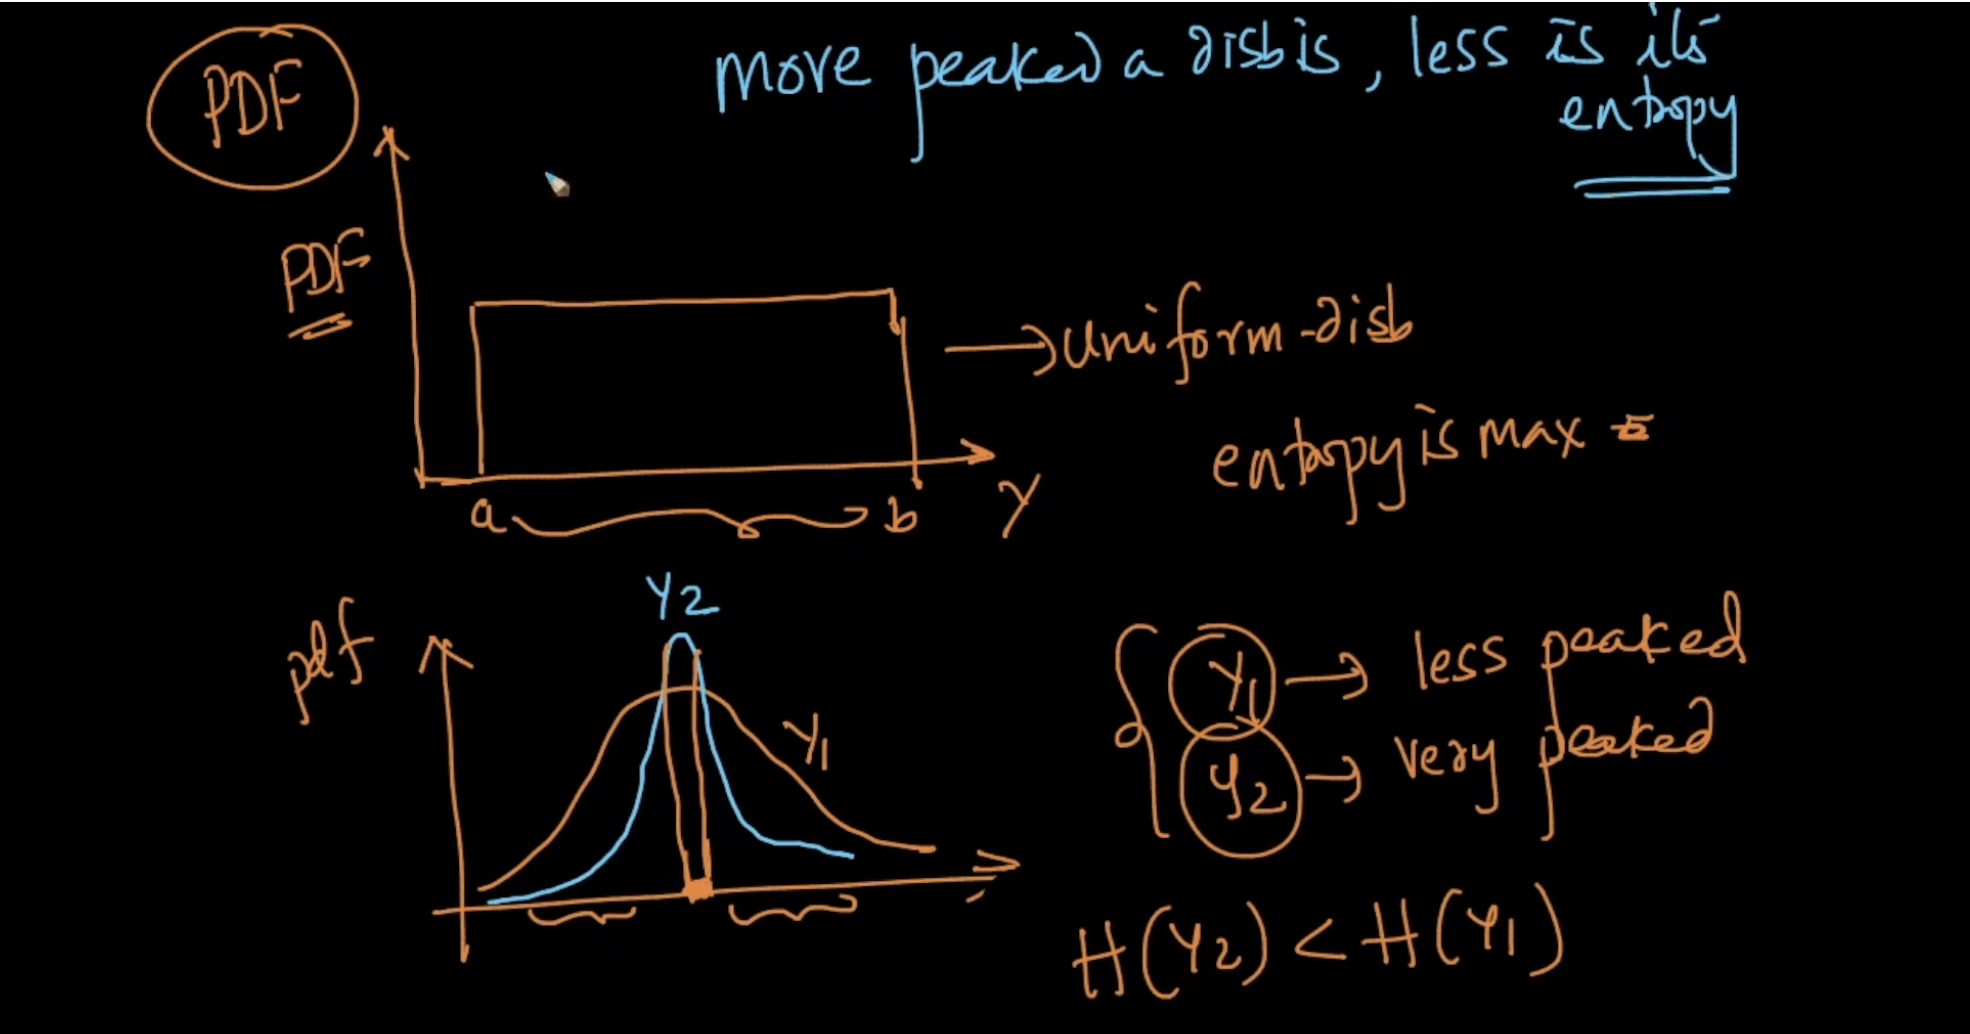 PDF
more peaked a disb is, less is its
entropy
PDF
→ uniform-disb
entropy is max
a b Y
pdf
Y2
Y1
Y1 → less peaked
Y2 → very peaked
H(Y2) < H(Y1)